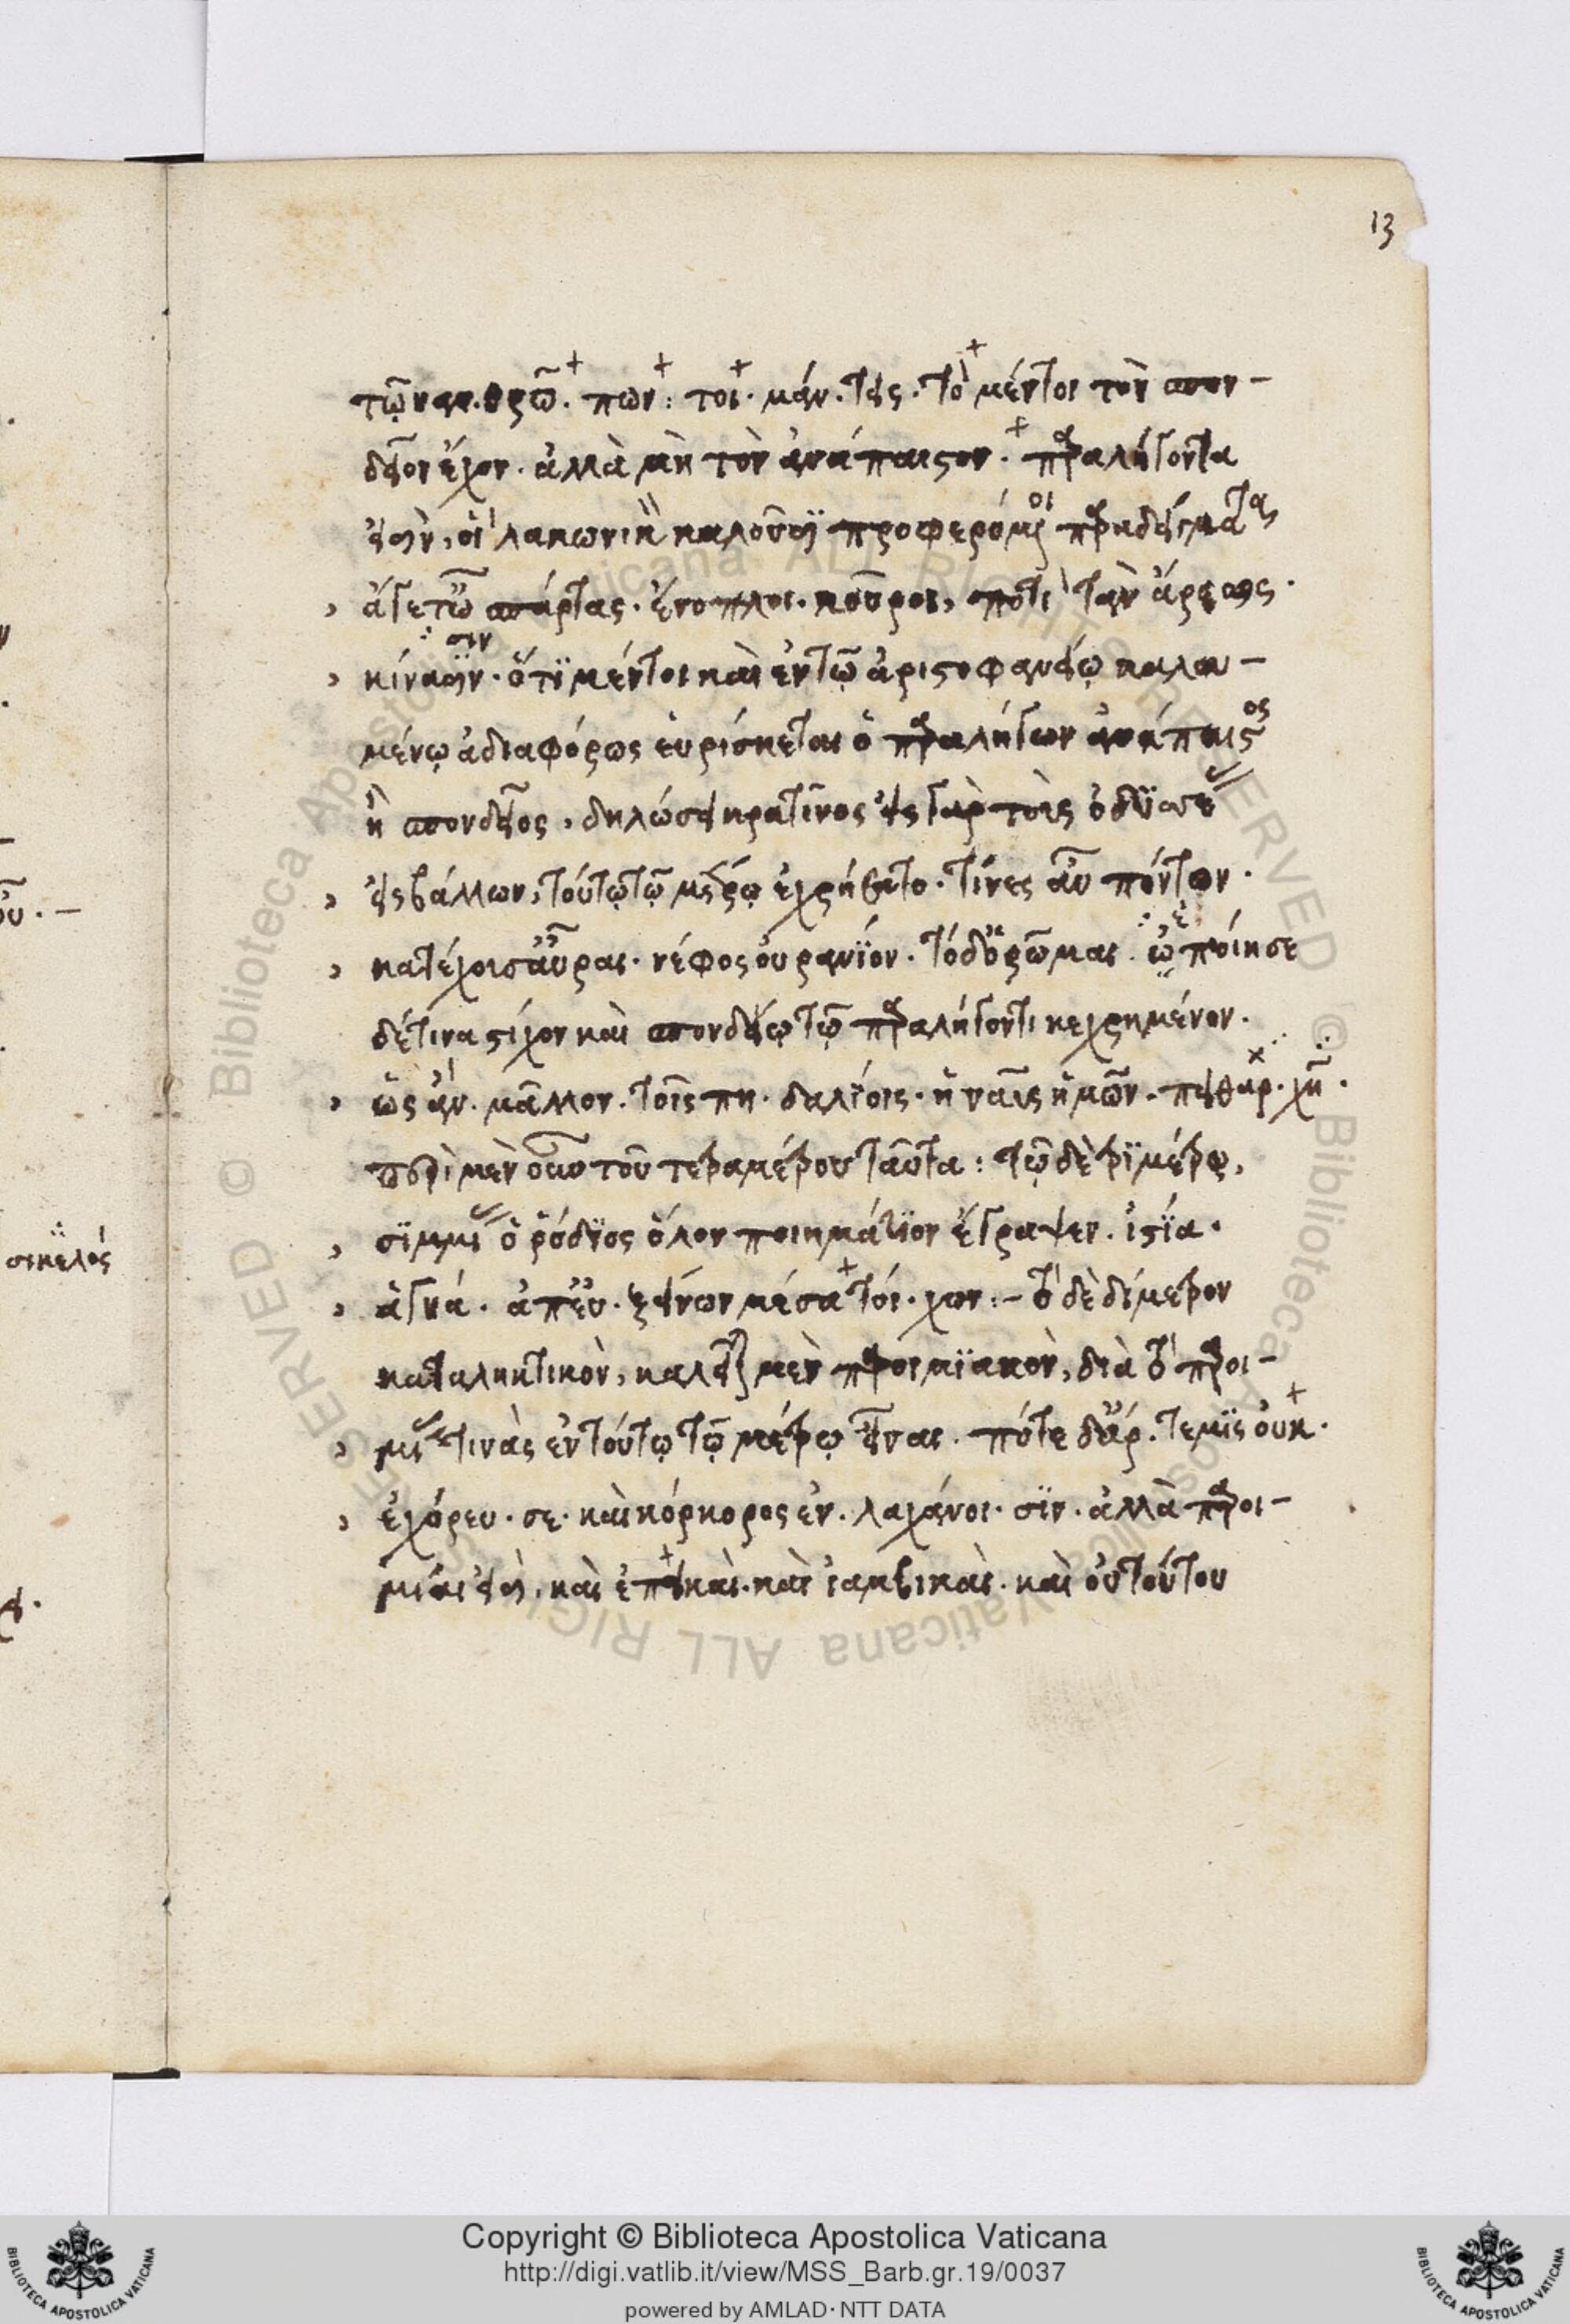 13
τῶν αν. θρώ. πων: τοι. μάν. τεις. τὸ μέντοι τὸν σπον–
δεῖον ἔχον. ἀλλὰ μὴ τὸν ἀνάπαιστον. παραλήγοντα
εἰσὶν, οἳ λακωνικὸν καλοῦσι προφερόμενοι παραδείγματα
› ἄγετ' ὦ σπάρτας. ἔνοπλοι. κοῦροι, ποτὶ τὰν ἄρεως.
› κίνασιν. ὅτι μέντοι καὶ ἐν τῶ ἀριστοφανείω καλου–
σιν
μένω ἀδιαφόρως εὑρίσκεται ὁ παραλήγων ἀνάπαιστος
ἢ σπονδεῖος, δηλώσει κρατῖνος εἰς γὰρ τοὺς ὀδυσσεῖς
› εἰσβάλλων, τούτω τῶ μέτρω ἐχρήσατο. τίνες αὖ πόντον.
› κατέχουσ' αὖραι. νέφος οὐράνιον. τόδ' ὁρῶμαι. ὦ ἐποίησε
δέ τινα στίχον καὶ σπονδείω τῶ παραλήγοντι κεχρημένον.
› ὡς ἂν. μᾶλλον. τοῖς πη. δαλίοις. ἡ ναῦς ἡμῶν. πειθαρ. χῆ.
περὶ μὲν οὖν τοῦ τετραμέτρου ταῦτα: τῶ δὲ τριμέτρω,
› σιμμίας ὁ ῥόδιος ὅλον ποιημάτιον ἔγραψεν. ἱστία.
› ἁγνά. ἀπ' εὐ. ξείνων μέσα τοί. χων:– τὸ δὲ δίμετρον
καταληκτικὸν, καλεῖται μὲν παροιμιακὸν, διὰ τὸ παροι–
› μίας τινὰς ἐν τούτω τῶ μέτρω εἶναι. πότε δ' ἄρ. τεμις οὐκ.
› ἐχόρευ. σε. καὶ κόρκορος ἐν. λαχάνοι. σιν. ἀλλὰ παροι–
μίαι εἰσὶ, καὶ ἐπικαὶ. καὶ ἰαμβικαὶ. καὶ οὐ τούτου
σικελός
Copyright © Biblioteca Apostolica Vaticana
http://digi.vatlib.it/view/MSS_Barb.gr.19/0037
powered by AMLAD· NTT DATA